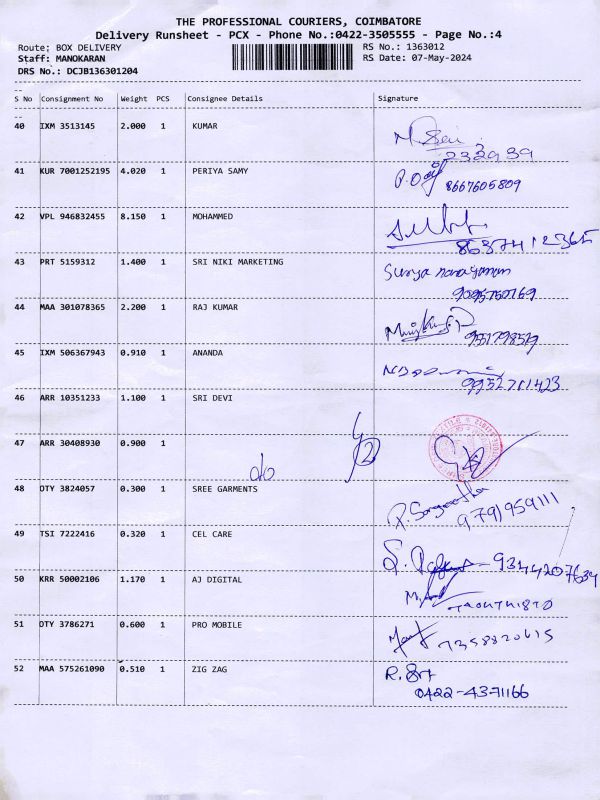 THE PROFESSIONAL COURIERS, COIMBATORE
Delivery Runsheet - PCX - Phone No.:0422-3505555 - Page No.:4
Route: BOX DELIVERY RS No.: 1363012
Staff: MANOKARAN RS Date: 07-May-2024
DRS No.: DCJB136301204
S No Consignment No Weight PCS Consignee Details Signature
40 IXM 3513145 2.000 1 KUMAR
232939
41 KUR 7001252195 4.020 1 PERIYA SAMY
8667605809
42 VPL 946832455 8.150 1 MOHAMMED
8637412365
43 PRT 5159312 1.400 1 SRI NIKI MARKETING Surya narayanan
9095750769
44 MAA 301078365 2.200 1 RAJ KUMAR
45 IXM 506367943 0.910 1 ANANDA
9952711423
46 ARR 10351233 1.100 1 SRI DEVI
47 ARR 30408930 0.900 1
do
48 DTY 3824057 0.300 1 SREE GARMENTS P. Sangeetha
9791959111
49 TSI 7222416 0.320 1 CEL CARE
9344207634
50 KRR 50002106 1.170 1 AJ DIGITAL
51 DTY 3786271 0.600 1 PRO MOBILE
7358820615
52 MAA 575261090 0.510 1 ZIG ZAG
0422-4371166